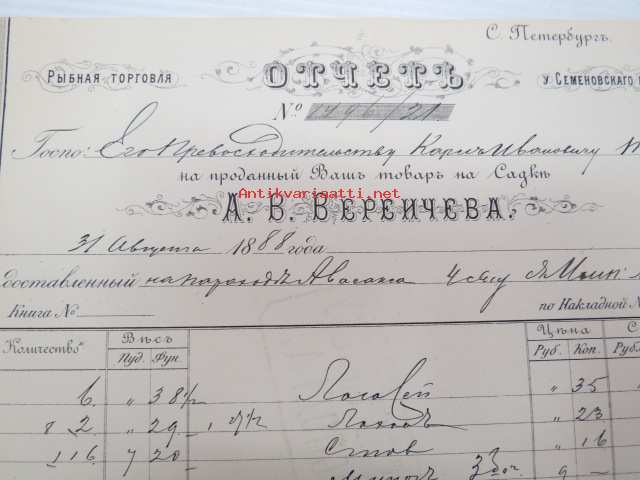 С. Петербургъ
Рыбная торговля ОТЧЕТЪ у Семеновского
№ 1746/21
Госпо: Его Превосходительству Карлъ Ивановичу
на проданный Вашъ товаръ на Садкѣ
Antikvarisatti.net
А. В. ВЕРЕИЧЕВА.
31 Августа 1888 года
доставленный на пароходѣ Авасакса
Книга № по Накладной №
Количество Вѣсъ Цѣна
Пуд. Фун. Руб. Коп. Рубл
6 „ 38 Лососей „ 35
8 2 „ 29 „ 23
116 7 20 Сиговъ „ 16